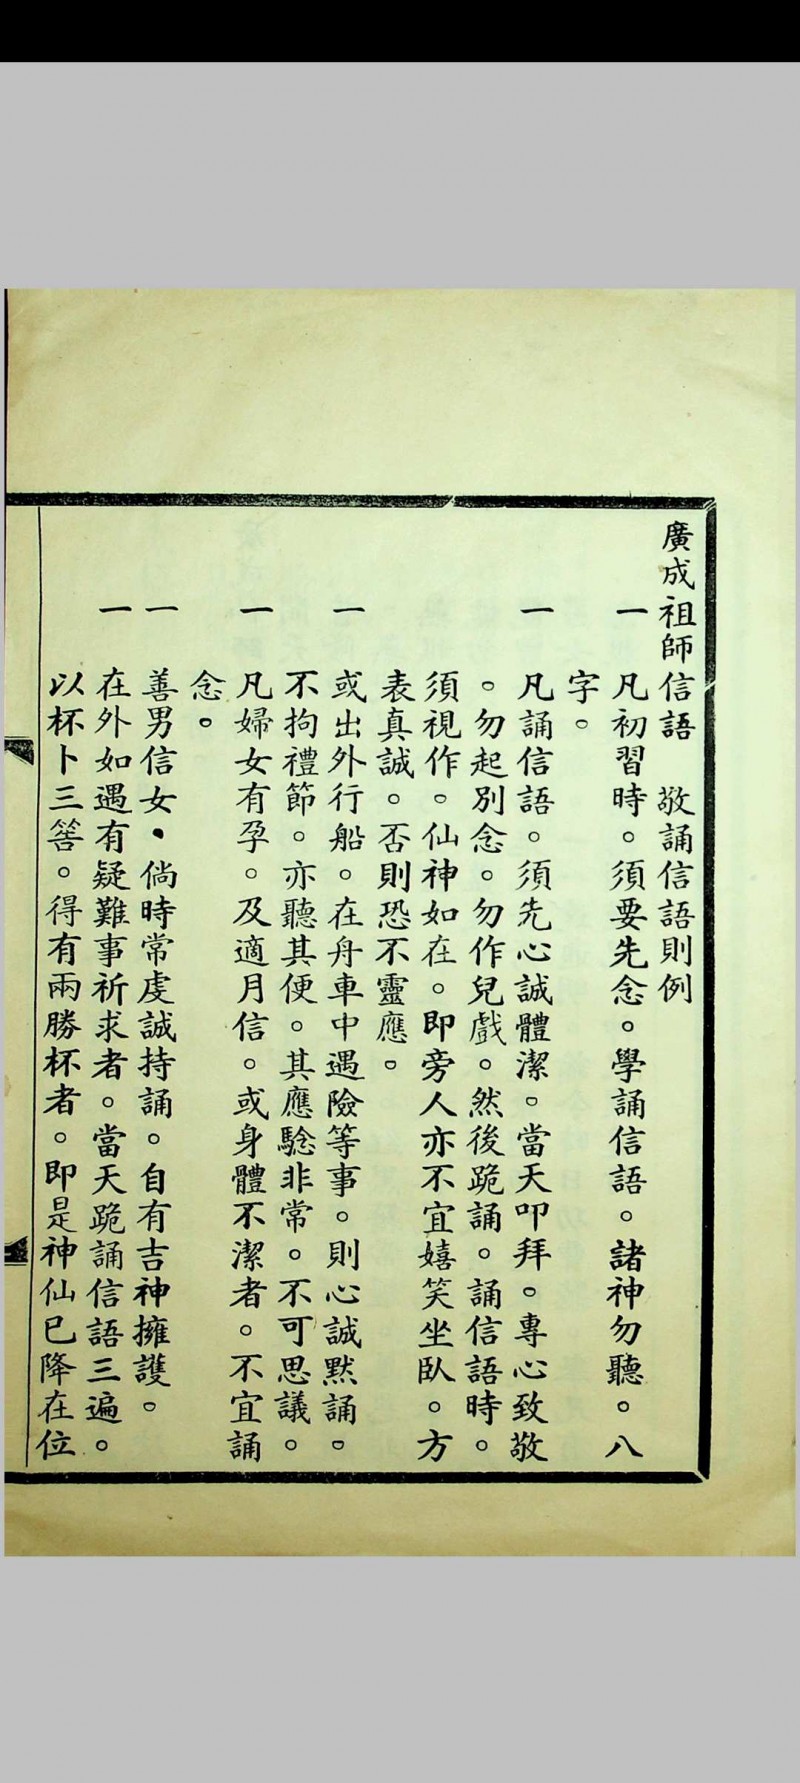 廣成祖師信語　敬誦信語則例
一　凡初習時。須要先念。學誦信語。諸神勿聽。八
字。
一　凡誦信語。須先心誠體潔。當天叩拜。專心致敬
。勿起別念。勿作兒戲。然後跪誦。誦信語時。
須視作。仙神如在。即旁人亦不宜嬉笑坐臥。方
表真誠。否則恐不靈應。
一　或出外行船。在舟車中遇險等事。則心誠默誦。
不拘禮節。亦聽其便。其應騐非常。不可思議。
一　凡婦女有孕。及適月信。或身體不潔者。不宜誦
念。
一　善男信女・倘時常虔誠持誦。自有吉神擁護。
一　在外如遇有疑難事祈求者。當天跪誦信語三遍。
以杯卜三筶。得有兩勝杯者。即是神仙已降在位